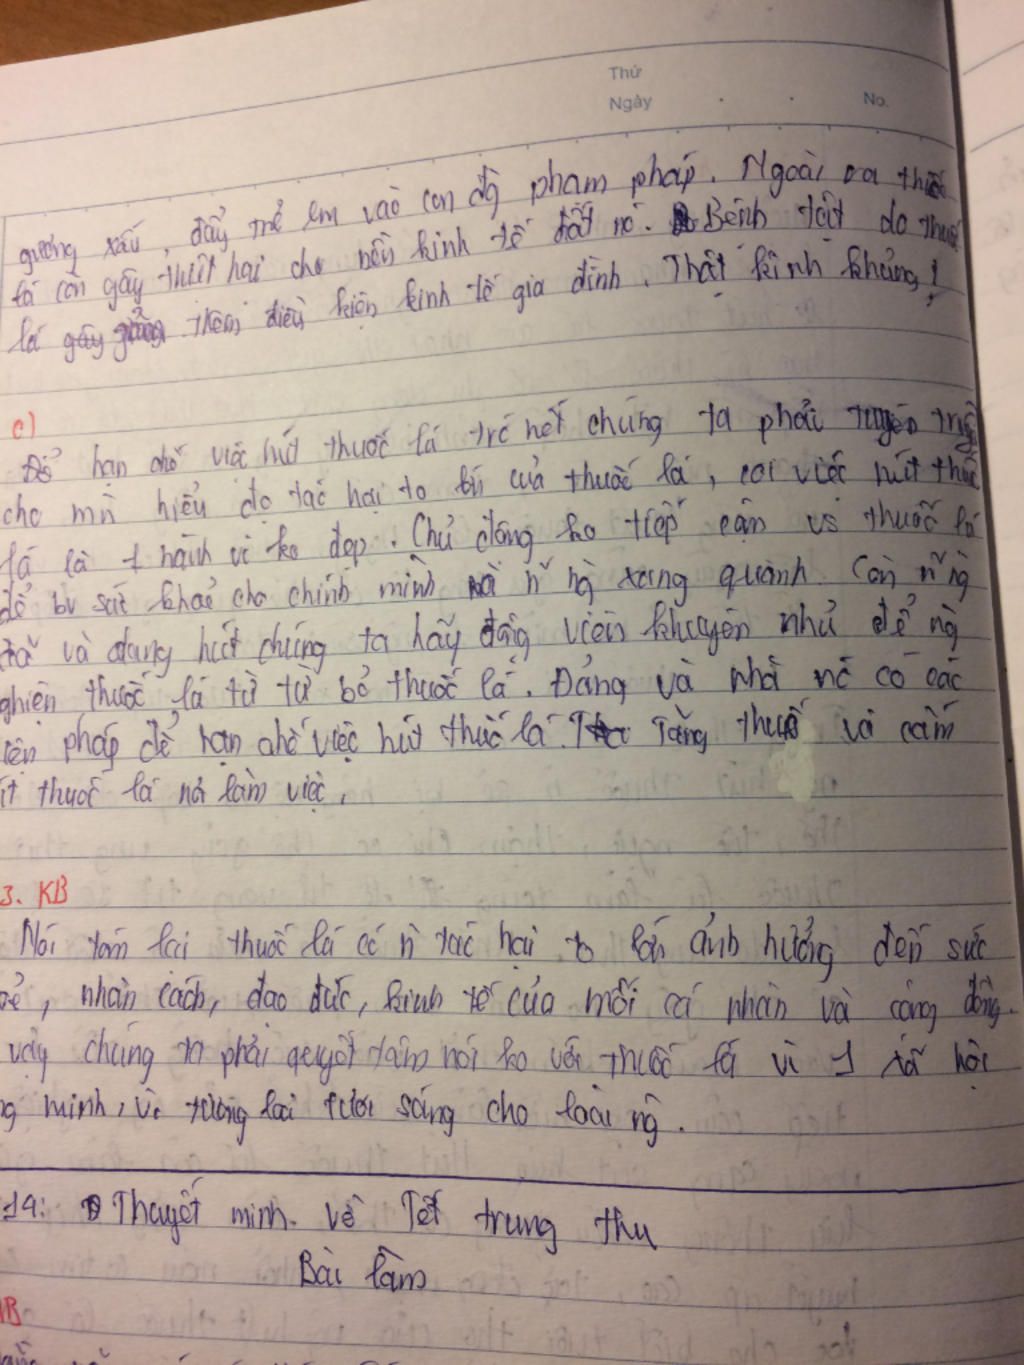 Thứ
Ngày . . No.
gương xấu, đẩy trẻ em vào con đg phạm pháp. Ngoài ra thuốc
lá còn gây thiệt hại cho nền kinh tế đất nc. Bệnh tật do thuốc
lá gây thêm điều kiện kinh tế gia đình. Thật kinh khủng!
c)
Để hạn chế việc hút thuốc lá trc hết chúng ta phải tuyên truyền
cho mn hiểu đc tác hại to lớn của thuốc lá, coi việc hút thuốc
lá là 1 hành vi ko đẹp. Chủ động ko tiếp cận vs thuốc lá
để bv sức khoẻ cho chính mình và n~ ng xung quanh. Còn n~ ng
đã và đang hút chúng ta hãy động viên khuyên nhủ để ng
nghiện thuốc lá từ từ bỏ thuốc lá. Đảng và nhà nc có các
iện pháp để hạn chế việc hút thuốc lá. Tăng thuế và cấm
út thuốc lá nơi làm việc.
3. KB
Nói tóm lại thuốc lá có n` tác hại to lớn ảnh hưởng đến sức
oẻ, nhân cách, đạo đức, kinh tế của mỗi cá nhân và cộng đồng.
vậy chúng ta phải quyết tâm nói ko với thuốc lá vì 1 xã hội
g minh, vì tương lai tươi sáng cho loài ng.
14: Thuyết minh về Tết trung thu
Bài làm
MB